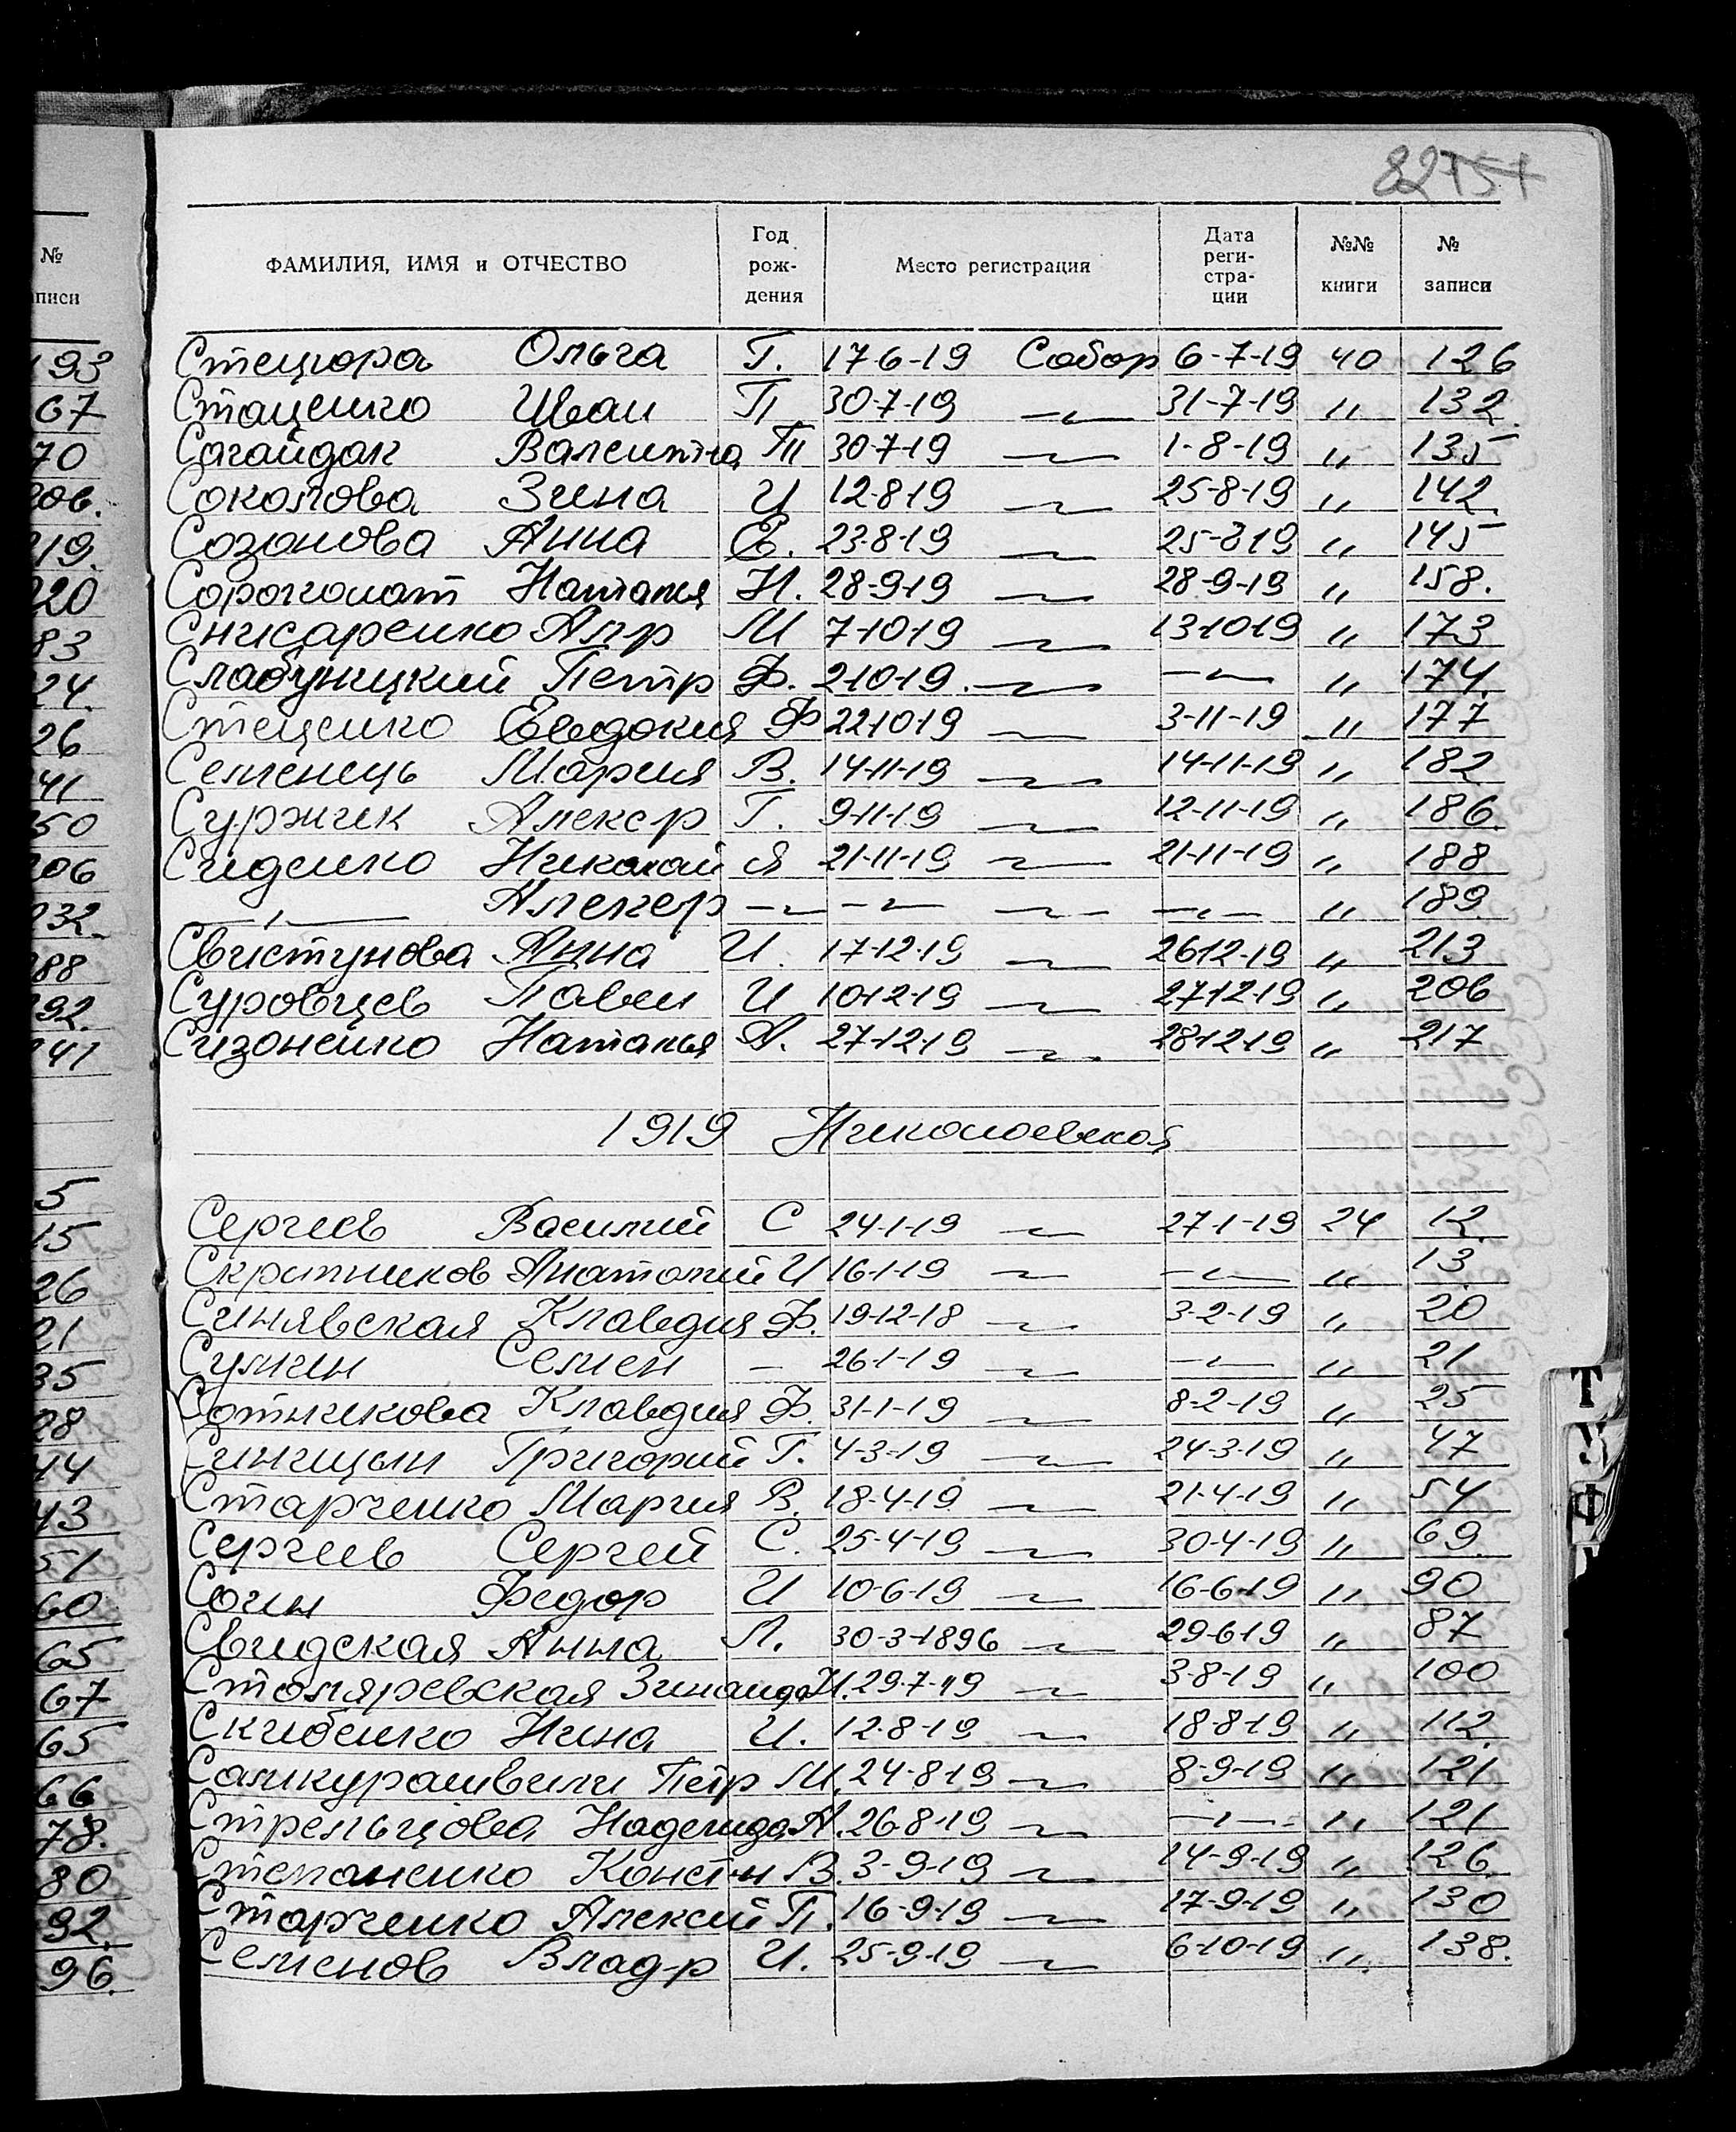 82 757
№
писи
ФАМИЛИЯ, ИМЯ и ОТЧЕСТВО Год рож- дения Место регистрация Дата реги- стра- ции №№ книги № записи
Стецюра Ольга Г. 17-6-19 Собор 6-7-19 40 126
Стаценко Иван П 30-7-19 —"— 31-7-19 " 132
Сагайдак Валентина П 30-7-19 —"— 1-8-19 " 135
Соколова Зина И 12-8-19 —"— 25-8-19 " 142
Созонова Анна Е. 23-8-19 —"— 25-8-19 " 145
Сорогонат Наталья Н. 28-9-19 —"— 28-9-19 " 158.
Снисаренко Ал-р М 7-10-19 —"— 13-10-19 " 173
Слабуницкий Петр Ф. 2-10-19 —"— —"— " 174.
Стеценко Евдокия Ф 22-10-19 —"— 3-11-19 " 177
Семенець Мария В. 14-11-19 —"— 14-11-19 " 182
Суржик Алекс-р Г. 9-11-19 —"— 12-11-19 " 186
Сиденко Николай Я 21-11-19 —"— 21-11-19 " 188
—"— Алекс-р —"— —"— —"— —"— " 189
Свистунова Анна И. 17-12-19 —"— 26-12-19 " 213
Суровцев Павел И 10-12-19 —"— 27-12-19 " 206
Сизоненко Наталья А. 27-12-19 —"— 28-12-19 " 217
1919 Николаевской
Сергеев Василий С 24-1-19 —"— 27-1-19 24 12
Скрипников Анатолий И 16-1-19 —"— —"— " 13
Синявская Клавдия Ф. 19-12-18 —"— 3-2-19 " 20
Сулин Семен — 26-1-19 —"— —"— " 21
Сотникова Клавдия Ф. 31-1-19 —"— 8-2-19 " 25
Синицын Григорий Г. 4-3-19 —"— 24-3-19 " 47
Старченко Мария В. 18-4-19 —"— 21-4-19 " 54
Сергеев Сергей С. 25-4-19 —"— 30-4-19 " 69
Сочин Федор И 10-6-19 —"— 16-6-19 " 90
Свидская Анна Л. 30-3-1896 —"— 29-6-19 " 87
Столяревская Зинаида И. 29-7-19 —"— 3-8-19 " 100
Скибенко Нина И. 12-8-19 —"— 18-8-19 " 112
Самкурашвили Петр М. 24-8-19 —"— 8-9-19 " 121
Стрельцова Надежда А. 26-8-19 —"— —"— " 121
Степаненко Конст-н В. 3-9-19 —"— 14-9-19 " 126
Старченко Алексей П. 16-9-19 —"— 17-9-19 " 130
Семенов Влад-р И. 25-9-19 —"— 6-10-19 " 138.
Т
У
Ф